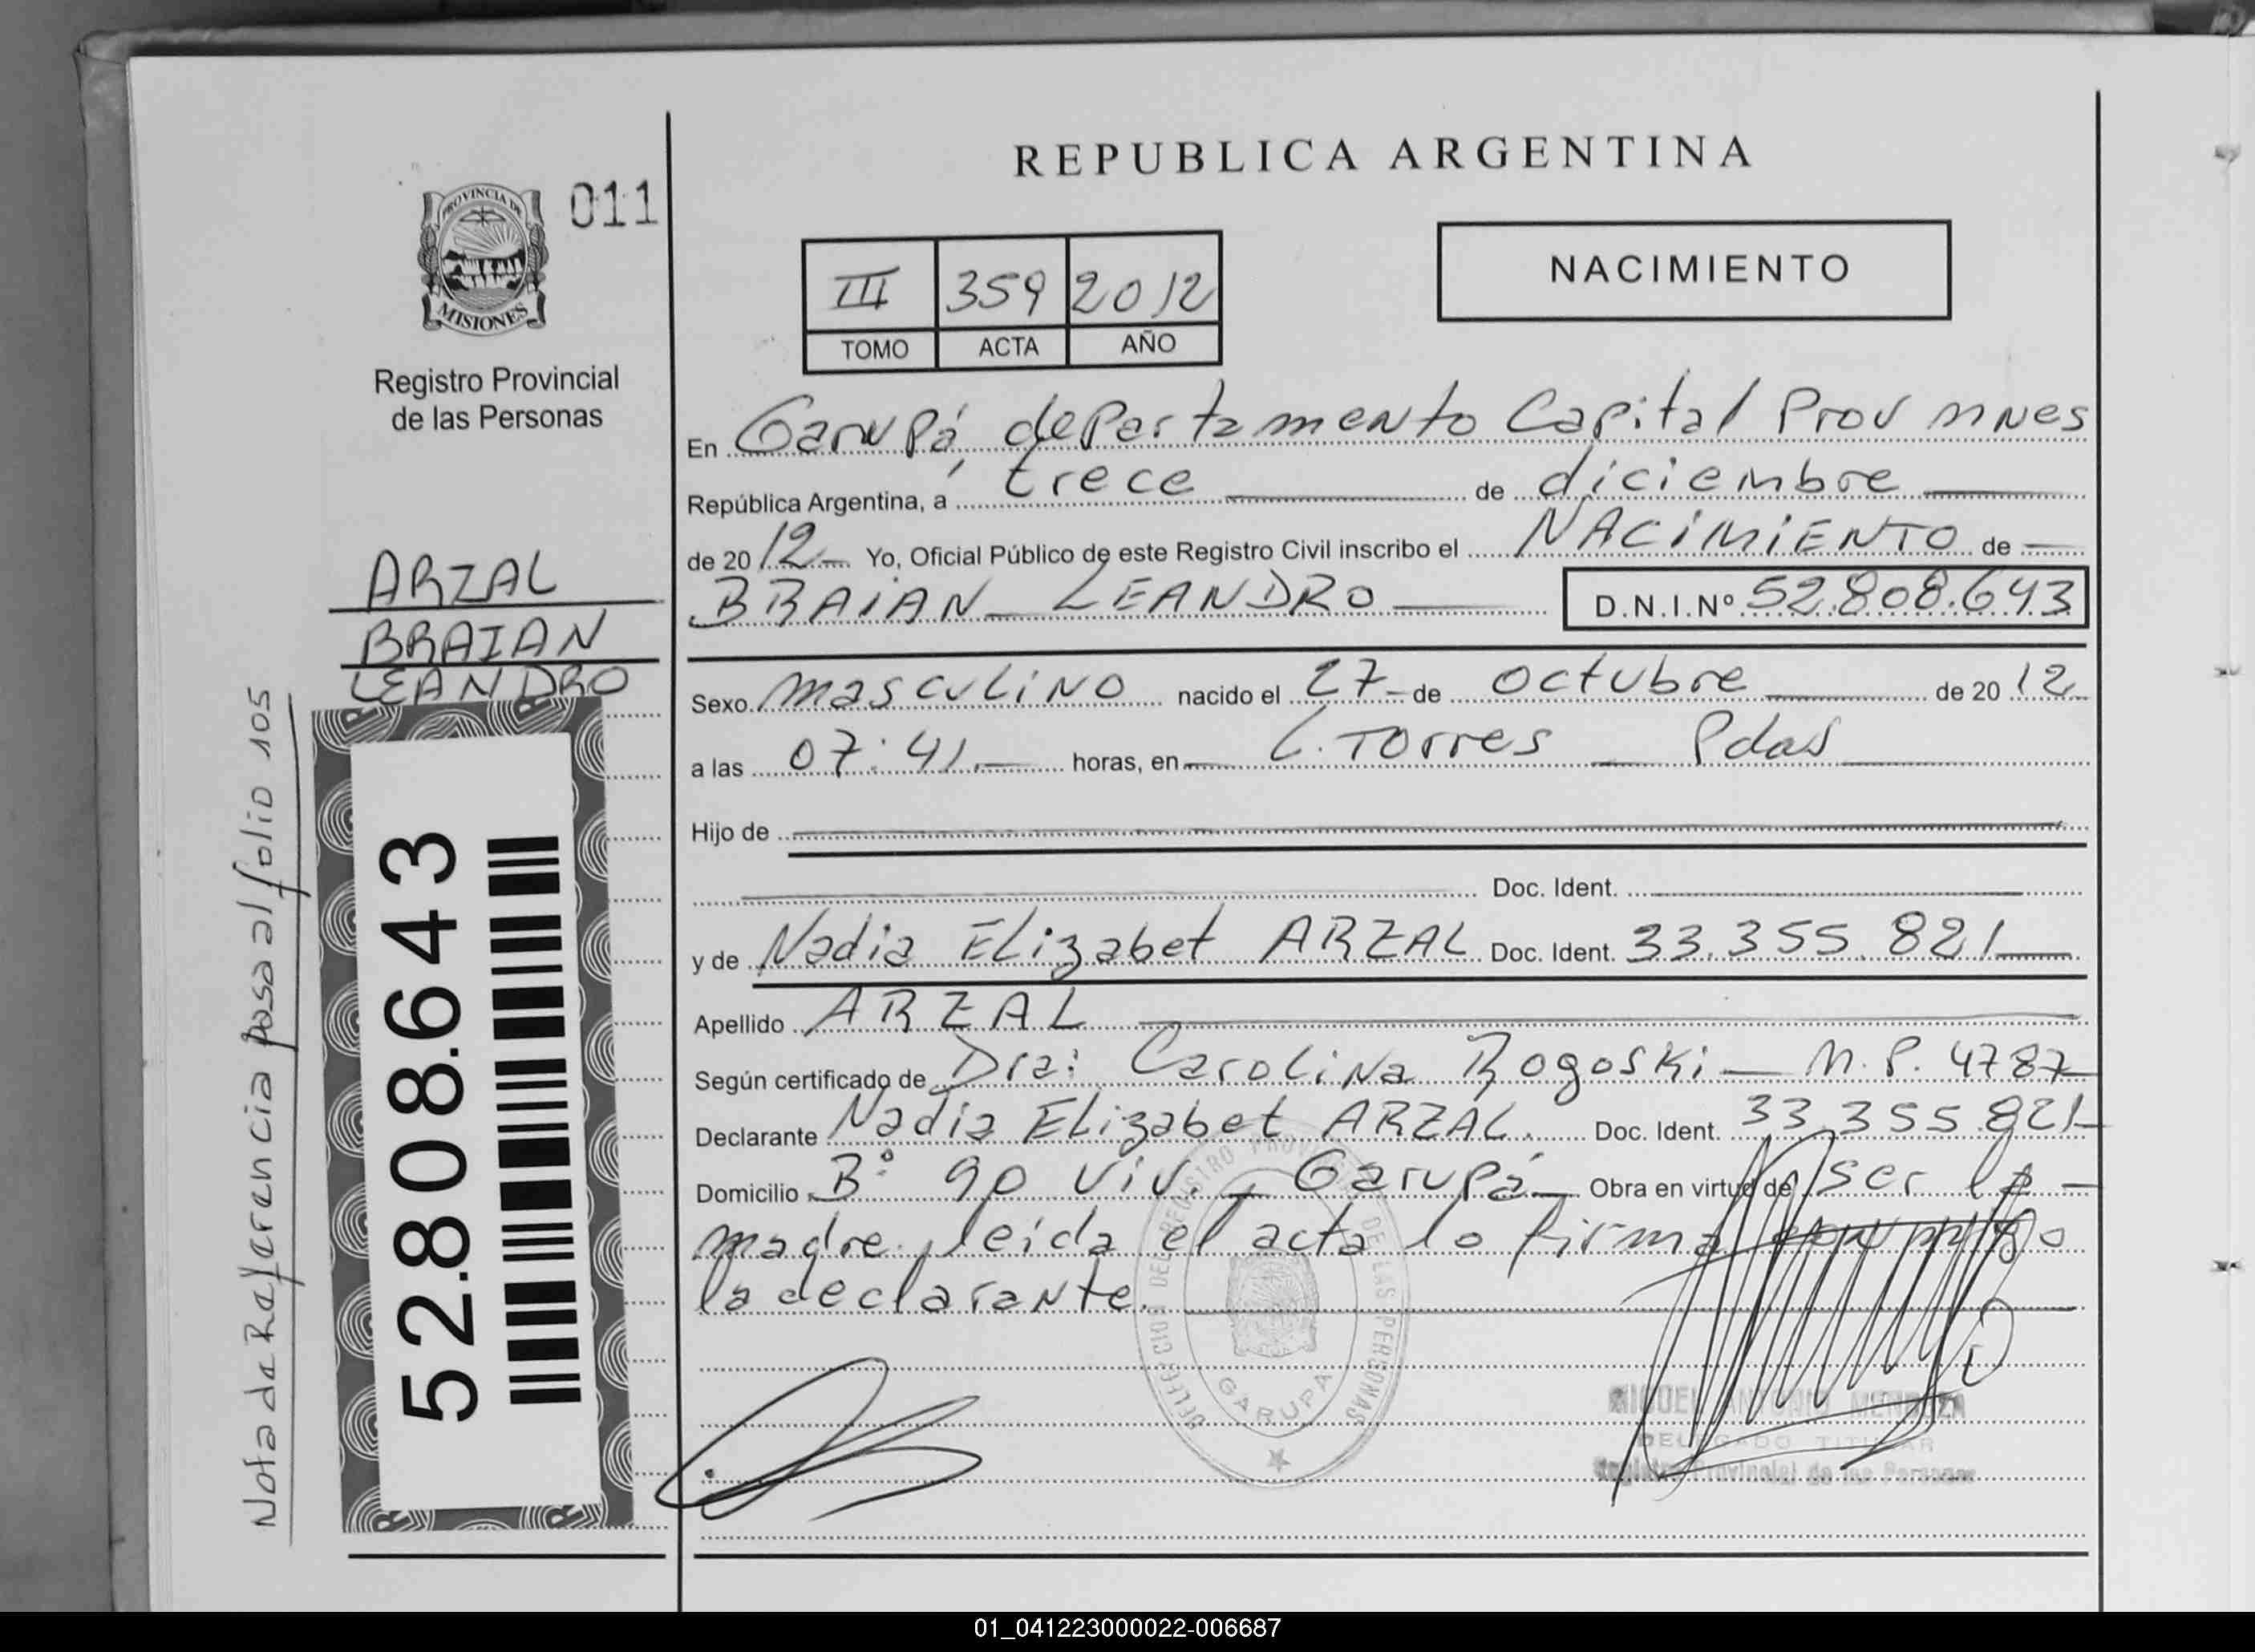 REPUBLICA ARGENTINA
PROVINCIA DE
MISIONES
011
Registro Provincial
de las Personas
III 359 2012
TOMO ACTA AÑO
NACIMIENTO
ARZAL
BRAIAN
LEANDRO
Nota de Referencia pasa al folio 105
52.808.643
En Garupá, departamento Capital Prov Mnes
República Argentina, a trece de diciembre
de 2012 Yo, Oficial Público de este Registro Civil inscribo el NACIMIENTO de
BRAIAN LEANDRO D.N.I.Nº 52.808.643
Sexo masculino nacido el 27 de octubre de 2012
a las 07:41 horas, en L. Torres Pdas
Hijo de
Doc. Ident.
y de Nadia Elizabet ARZAL Doc. Ident. 33.355.821
Apellido ARZAL
Según certificado de Dra: Carolina Rogoski M.P. 4787
Declarante Nadia Elizabet ARZAL. Doc. Ident. 33.355.821
Domicilio Bº 90 viv. Garupá Obra en virtud de ser la
madre, leida el acta lo firma conmigo
la declarante.
DELEGACION DEL REGISTRO PROVINCIAL DE LAS PERSONAS
GARUPA
MIGUEL ANTONIO MENDOZA
DELEGADO TITULAR
Registro Provincial de las Personas
01_041223000022-006687